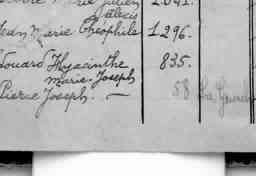 Marie Julien 2.041.
Alexis
Jean Marie Théophile 1296.
Édouard Hyacinthe 835.
Marie-Joseph
Pierre Joseph. — 58